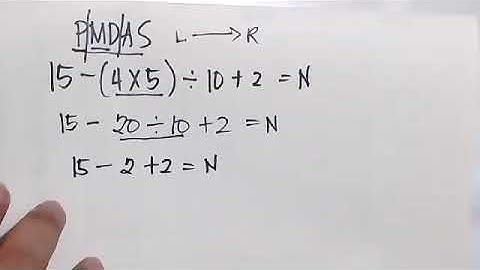 P/MD/AS L → R
15 - (4 x 5) ÷ 10 + 2 = N
15 - 20 ÷ 10 + 2 = N
15 - 2 + 2 = N